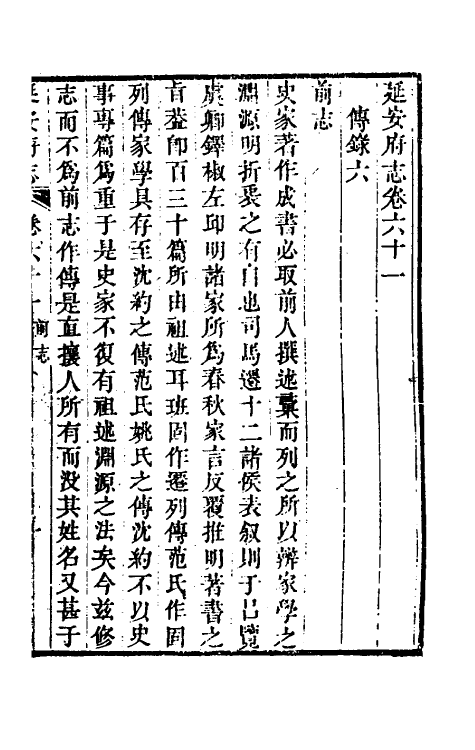 延安府志卷六十一
傳錄六
前志
史家著作成書必取前人撰述彙而列之所以辨家學之
淵源明折衷之有自也司馬遷十二諸侯表叙則于呂覽
虞卿鐸椒左邱明諸家所為春秋家言反覆推明著書之
旨葢即百三十篇所由祖述耳班固作遷列傳范氏作固
列傳家學具存至沈約之傳范氏姚氏之傳沈約不以史
事專篇為重于是史家不復有祖述淵源之法矣今兹修
志而不為前志作傳是直攘人所有而沒其姓名又甚于
延安府志 卷六十一 前志